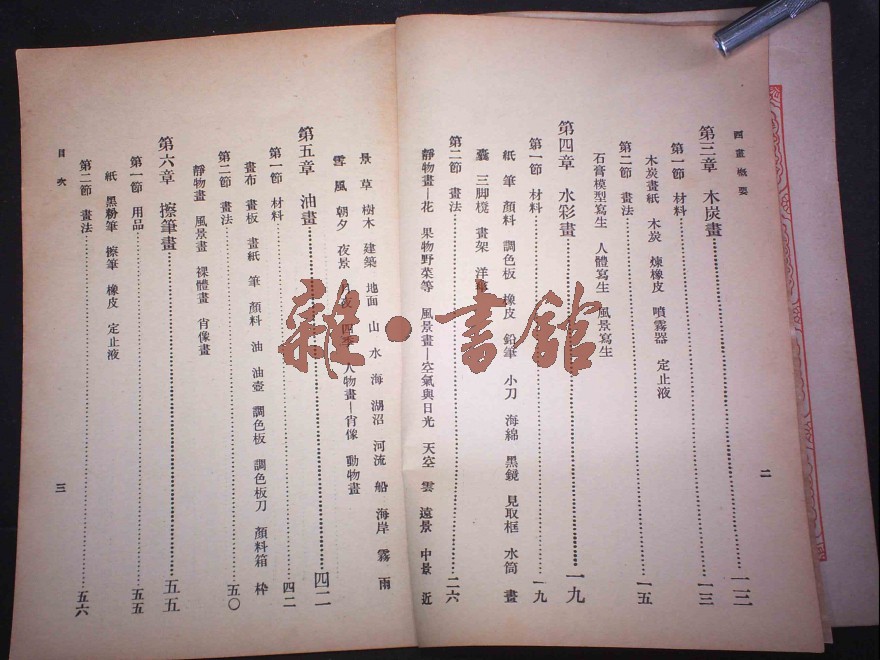 西畫概要
第三章 木炭畫……一三
第一節 材料……一三
木炭畫紙 木炭 煉橡皮 噴霧器 定止液
第二節 畫法……一五
石膏模型寫生 人體寫生 風景寫生
第四章 水彩畫……一九
第一節 材料……一九
紙 筆 顏料 調色板 橡皮 鉛筆 小刀 海綿 黑鏡 見取框 水筒 畫
囊 三脚櫈 畫架 洋
第二節 畫法……二六
靜物畫—花 果物野菜等 風景畫—空氣與日光 天空 雲 遠景 中景 近
二
景 草 樹木 建築 地面 山 水 海 湖沼 河流 船 海岸 霧 雨
雪 風 朝夕 夜景 月夜 四季 人物畫—肖像 動物畫
第五章 油畫……四二
第一節 材料……四二
畫布 畫板 畫紙 筆 顏料 油 油壺 調色板 調色板刀 顏料箱 枠
第二節 畫法……五〇
靜物畫 風景畫 裸體畫 肖像畫
第六章 擦筆畫……五五
第一節 用品……五五
紙 黑粉筆 擦筆 橡皮 定止液
第二節 畫法……五六
目次
三
雜·書館